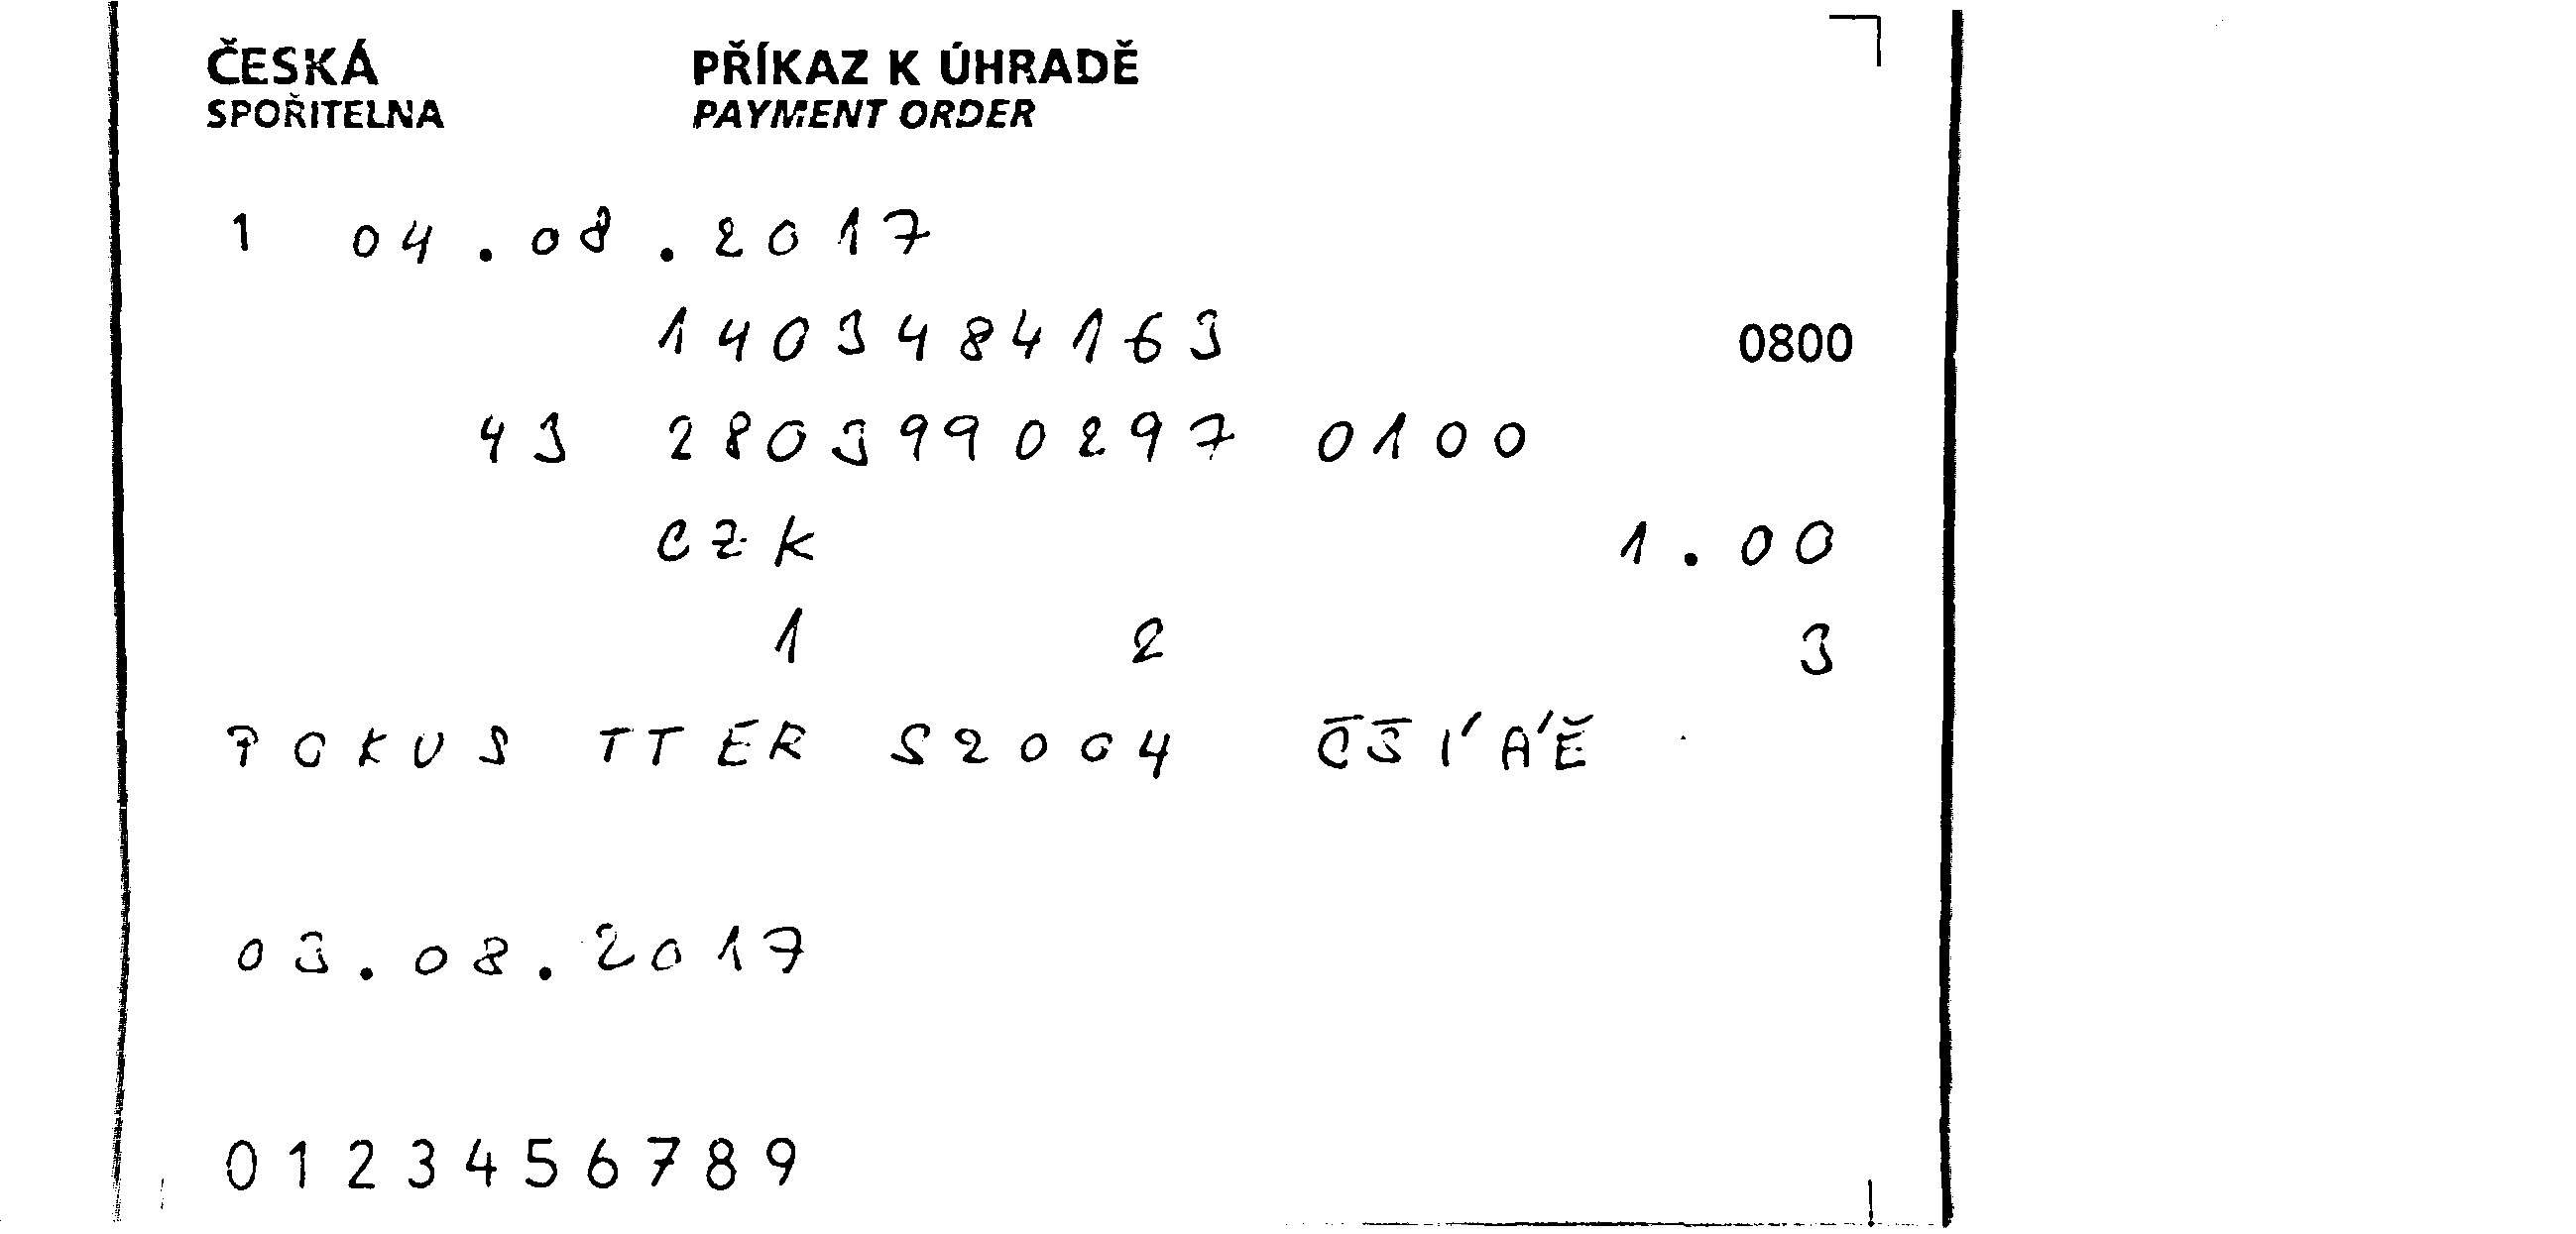 ČESKÁ
SPOŘITELNA
PŘÍKAZ K ÚHRADĚ
PAYMENT ORDER
1 04.08.2017
1403484163 0800
43 2803990297 0100
CZK 1.00
1 2 3
POKUS TTER S2004 ČŠÍÁĚ
03.08.2017
0123456789